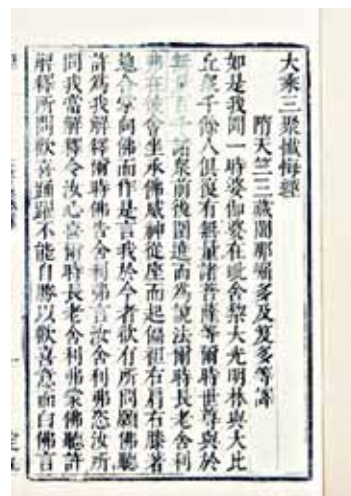 大乘三聚懺悔經
隋天竺三藏闍那崛多及笈多等譯
如是我聞一時婆伽婆在毗舍黎大光明林與大比
丘衆千餘人俱復有無量諸菩薩等爾時世尊與於
無量百千諸衆前後圍遶而爲說法爾時長老舍利
弗在彼會坐承佛威神從座而起偏袒右肩右膝著
地合掌向佛而作是言我於今者欲有所問願佛聽
許爲我解釋爾時佛告舍利弗言汝舍利弗恣汝所
問我當解釋令汝心喜爾時長老舍利弗蒙佛聽許
解釋所問歡喜踊躍不能自勝以歡喜意而白佛言